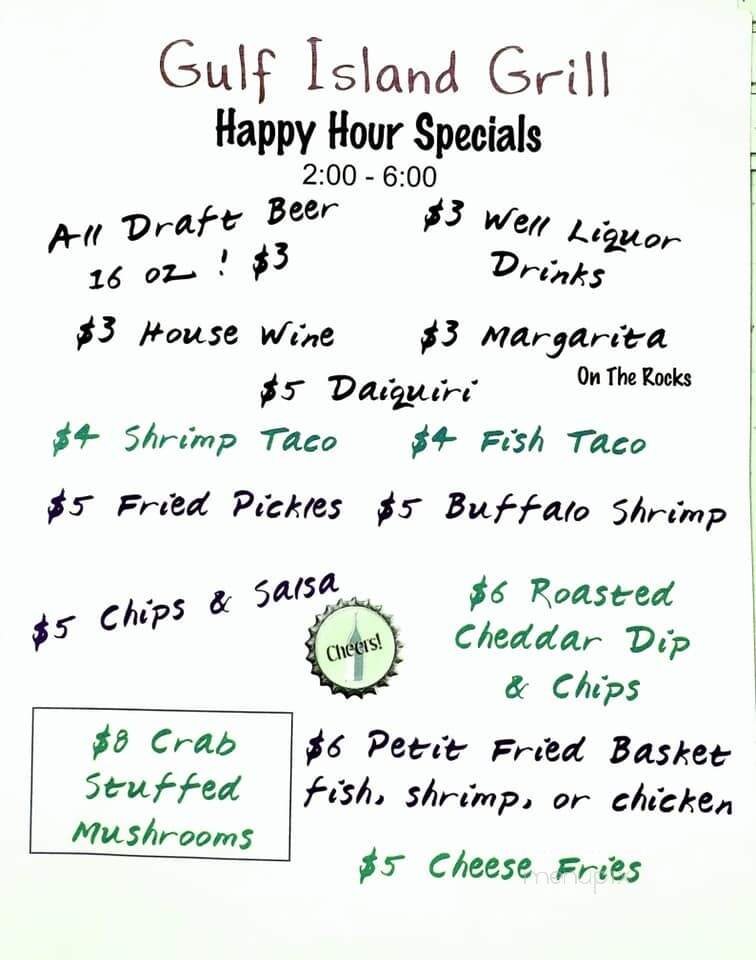 Gulf Island Grill
Happy Hour Specials
2:00 - 6:00
All Draft Beer
16 oz ! $3
$3 Well Liquor
Drinks
$3 House Wine
$3 Margarita
On The Rocks
$5 Daiquiri
$4 Shrimp Taco
$4 Fish Taco
$5 Fried Pickles
$5 Buffalo Shrimp
$5 Chips & Salsa
Cheers!
$6 Roasted
Cheddar Dip
& Chips
$8 Crab
Stuffed
Mushrooms
$6 Petit Fried Basket
fish, shrimp, or chicken
$5 Cheese Fries